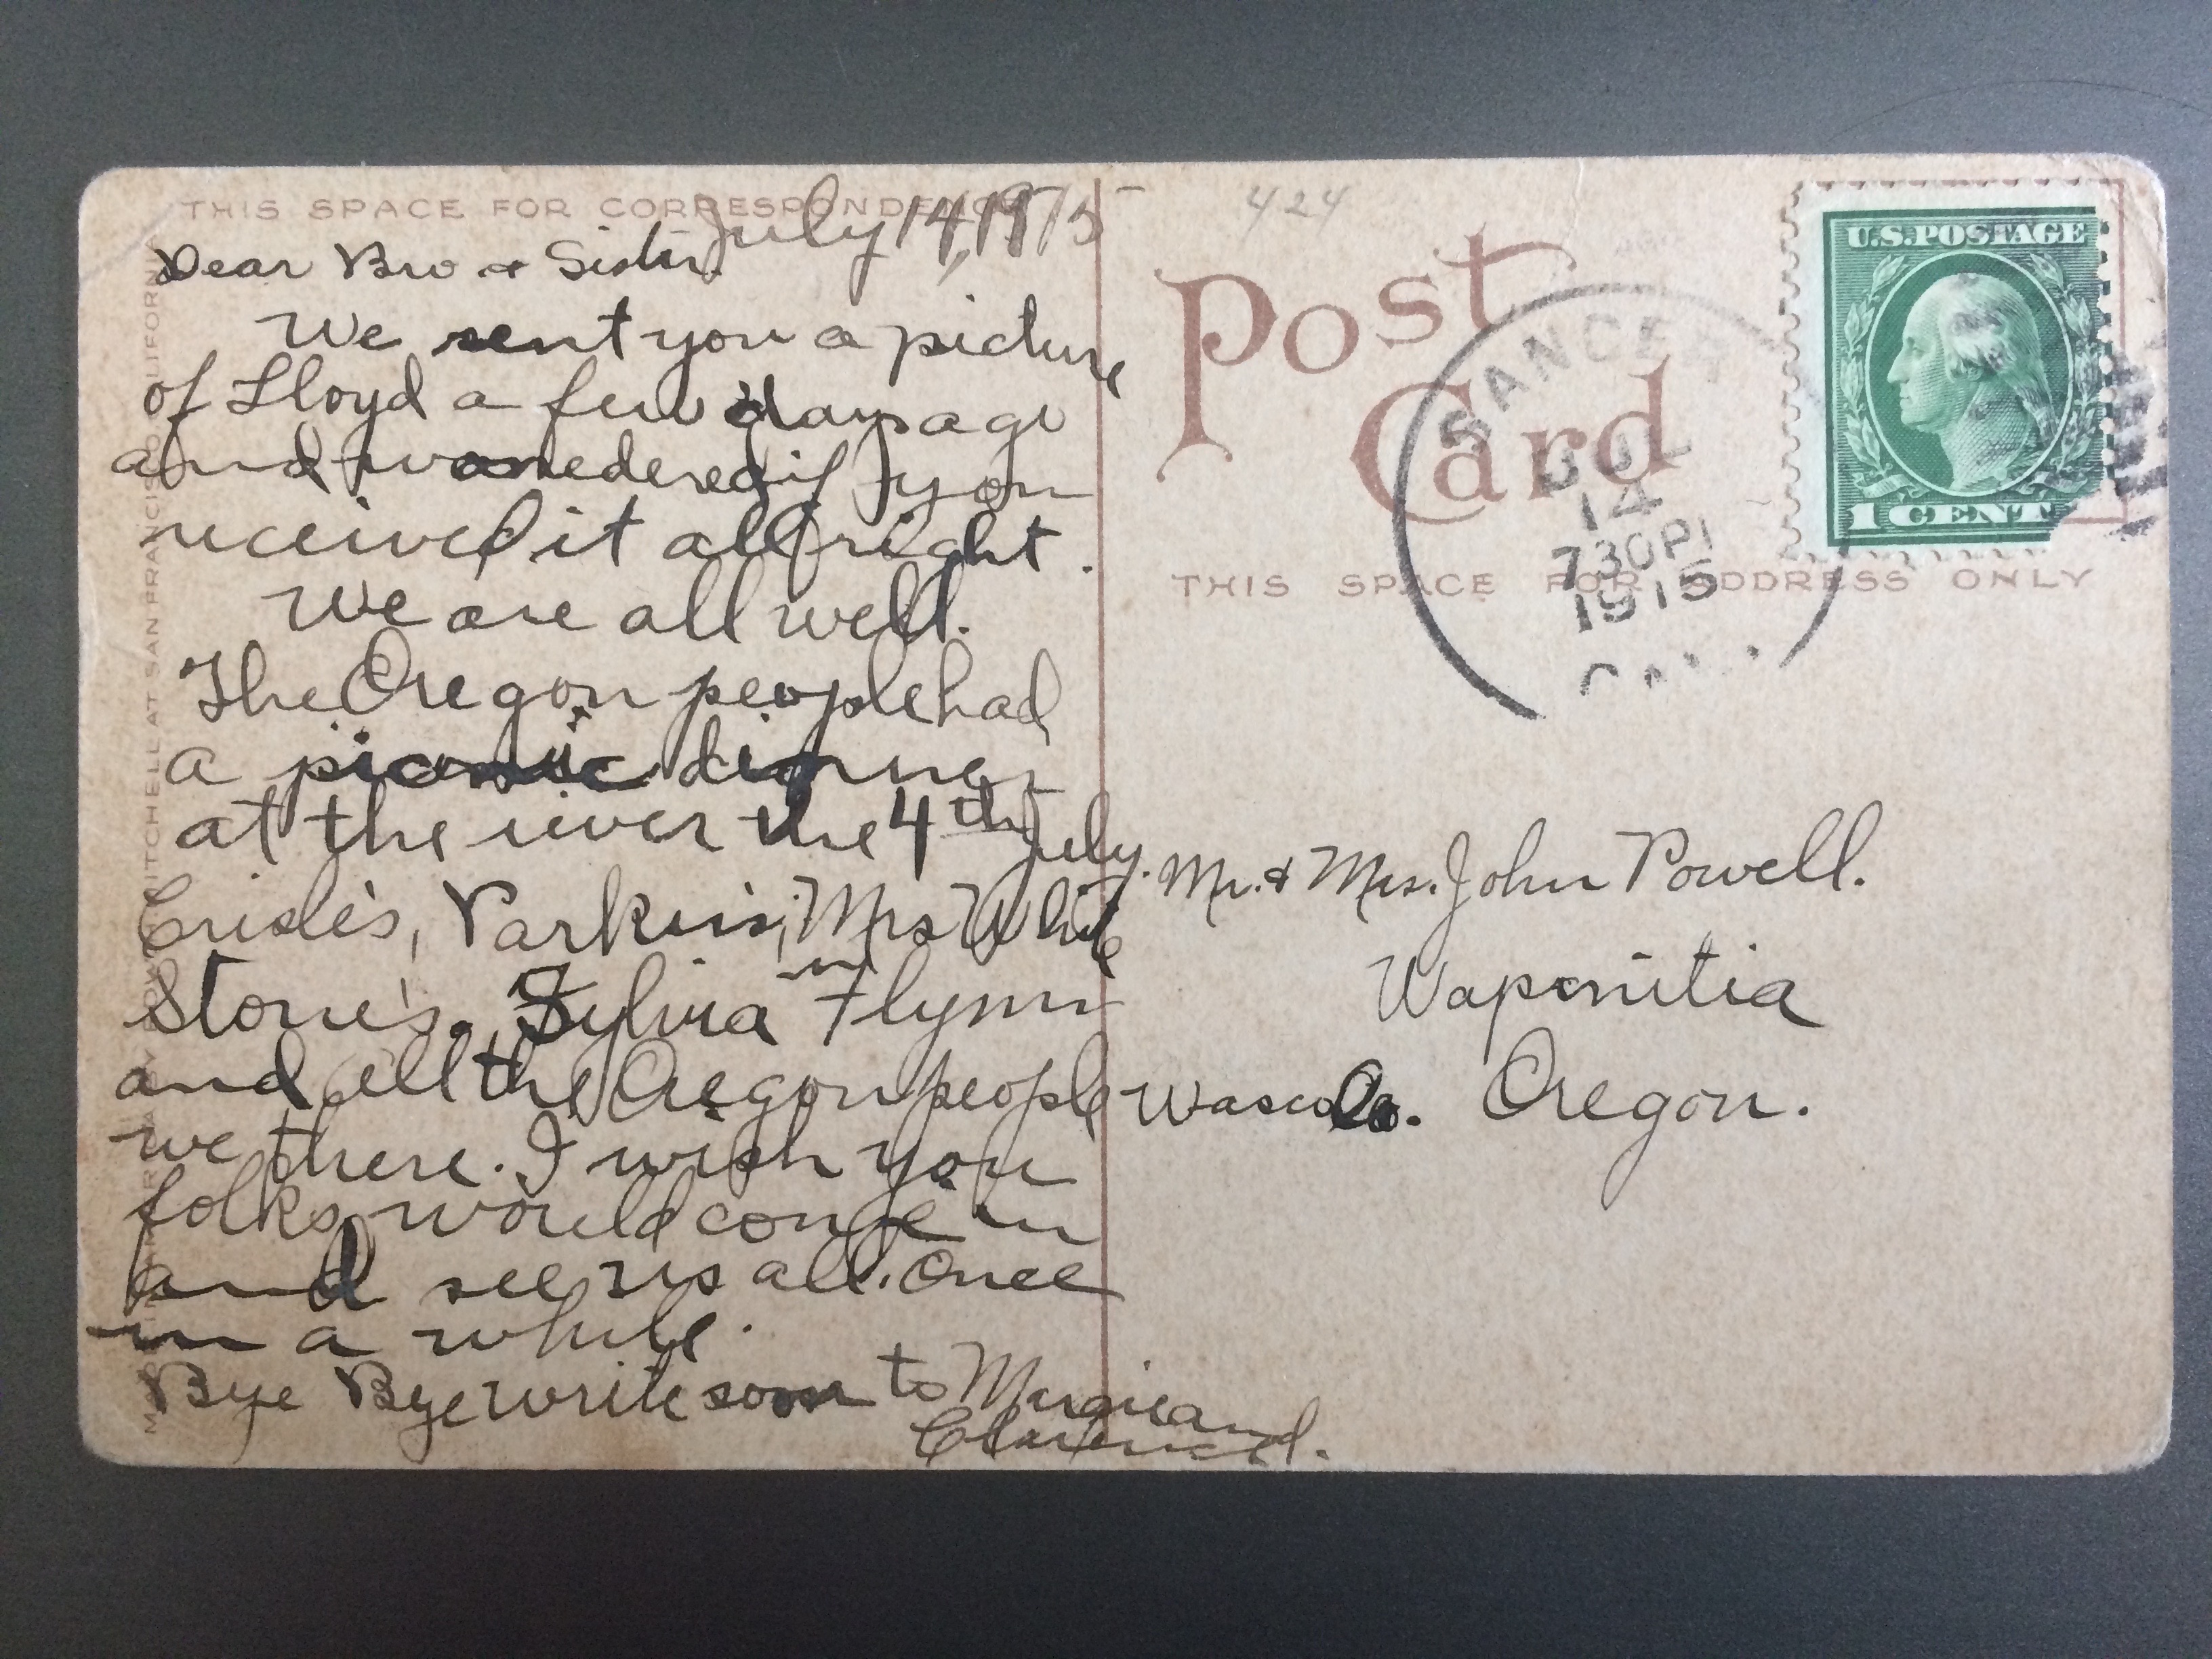 THIS SPACE FOR CORRESPONDENCE
July 14, 1915
Dear Bro + Sister.
We sent you a picture
of Lloyd a few days ago
and wonedered if you
received it all right.
We are all well.
The Oregon people had
a picnic dinner
at the river the 4th July.
Parkins, Mrs White
Stone's. Sylvia Flynn
and all the Oregon people
we there. I wish you
folks would come in
and see us all. Once
in a while.
Bye Bye write soon to Margie and
Clarence.
424
Post
Card
SANGER
JUL
14
730P
1915
CAL.
U.S.POSTAGE
1 CENT
THIS SPACE FOR ADDRESS ONLY
Mr. & Mrs. John Powell.
Wapinitia
Wasco Co. Oregon.
MITCHELL AT SAN FRANCISCO CALIFORNIA